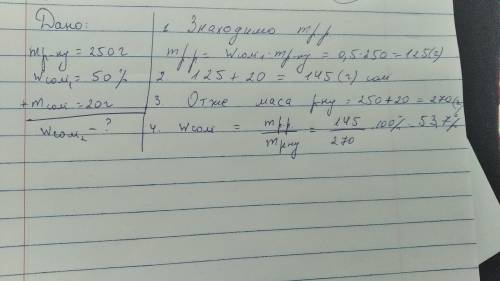 Дано:
mр-ну = 250 г
Wсолі₁ = 50 %
+ mсолі = 20 г
Wсолі₂ - ?
1. Знаходимо mрр
mрр = Wсолі₁ · mр-ну = 0,5 · 250 = 125 (г)
2. 125 + 20 = 145 (г) солі
3. Отже маса р-ну = 250 + 20 = 270 (г)
4. Wсолі = mрр / mр-ну = 145 / 270 · 100% = 53,7 %